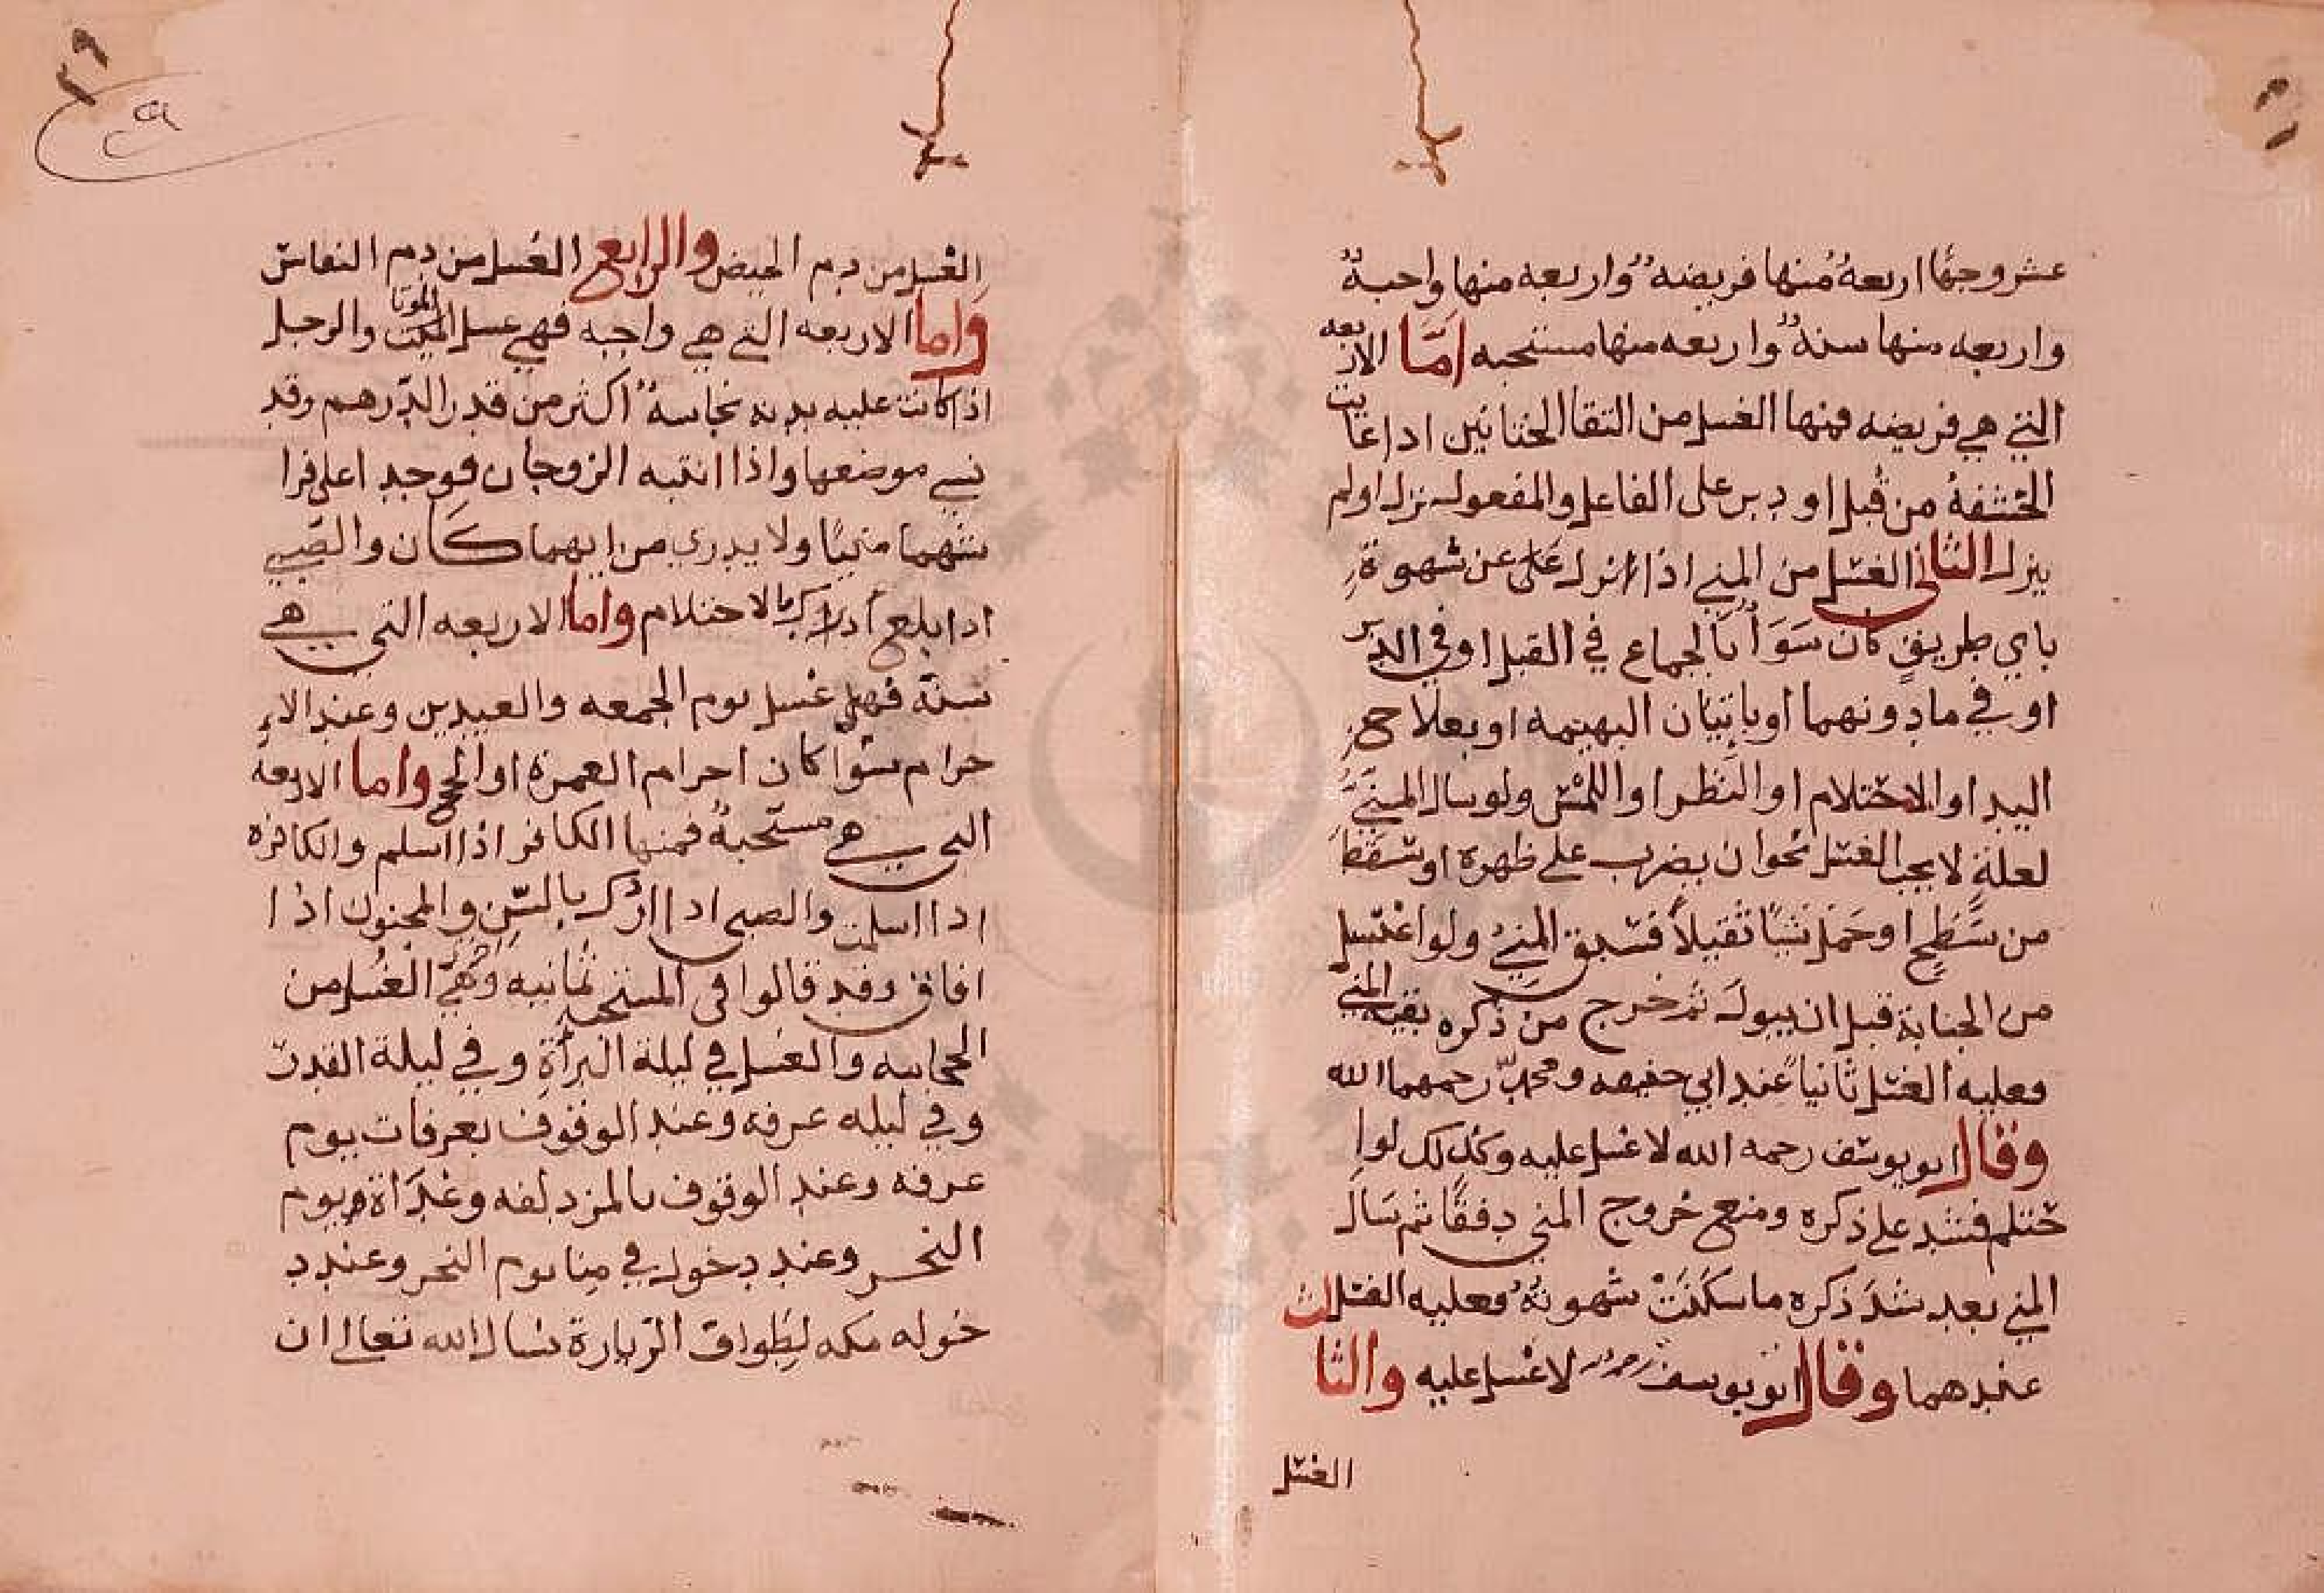 عشر وجها اربعةٌ منها فريضه واربعه منها واجبةٌ
واربعه منها سنةٌ واربعه منها مستحبه اَمَّا الاربعه
التي هي فريضه فمنها الغسل من التقا الختانين اذا غابت
الحشفةُ من قُبل او دبر على الفاعل والمفعول نزل اولم
ينزل الثاني الغسل من المني اذا انزل على عن شهوةٍ
باي طريقٍ كان سَوَاً بالجماع في القبل او في الدبر
او في مادونهما او باتيان البهيمه او بعلاج
اليد او الاحتلام او النظر او اللمس ولو سال المني
لعلةٍ لا يجب الغسل نحوان يضرب على ظهره او سقط
من سَطحٍ او حَمَل شيًا ثقيلاً فسبق المنيُ ولو اغتسل
من الجنابة قبل ان يبول ثم خرج من ذكره بقية المني
فعليه الغسل ثانياً عند ابي حنيفه ومحمدٍ رحمهما الله
وقال ابو يوسف رحمه الله لا غسل عليه وكذلك لوا
حتلم فشد على ذكره ومنع خروج المني دفقًا ثم سَال
المني بعد شدَ ذكره ما سكَنَتْ شهوتهُ فعليه الغسل
عندهما وقال ابو يوسف لا غسل عليه والثالث
الغسل
٢٩
٢٩
الغسل من دم الحيض والرابع الغسل من دم النفاس
واما الاربعه التي هي واجبه فهي غسل الميت الموتا والرجل
اذا كانت عليه بدنه نجاسةٌ اكثر من قدر الدّرهم وقد
نسي موضعها واذا انتبه الزوجان فوجد اعلى فرا
شهما منيًا ولا يدري من ايهما كان والصَبي
اذا بلغ ادرك بالاحتلام واما الاربعه التي هي
سنة فهي غسل يوم الجمعه والعيدين وعند الا
حرام سَوا كان احرام العمرة او الحج واما الاربعة
التي هي مستحبةٌ فمنها الكافر اذا اسلم والكافره
اذا اسلمت والصبي اذا ادرك بالسّن والمجنون اذا
افاق وقد قالوا في المستحبه ثمانيه وهيَ الغُسل من
الحجامه والغسل في ليلة البرأة وفي ليلة القدر
وفي ليله عرفه وعند الوقوف بعرفات يوم
عرفه وعند الوقوف بالمزدلفه وغدَاة يوم
النحر وعند دخول في منا يوم النحر وعند د
خوله مكه لِطَواف الزيارة نسال الله تعالى ان